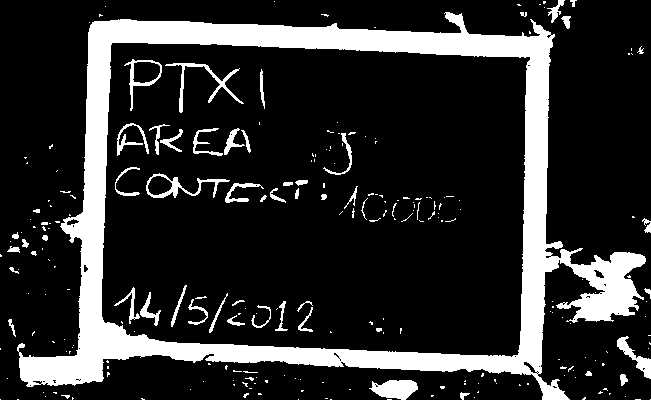 PTX1
AREA J
CONTEXT: 10000
14/5/2012